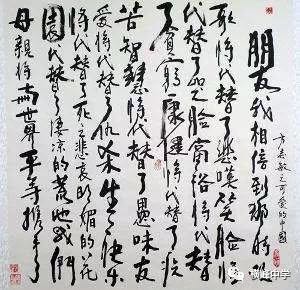 朋友我相信到那时
歌将代替了悲嘆笑脸将
代替了哭脸富裕将代替
了贫穷康健将代替了疾
苦智慧将代替了愚昧友
爱将代替了仇杀生之快乐
将代替了死之悲哀明媚的花
园将代替了凄凉的荒地我们
母親将与世界平等携手
方志敏之可爱的中国
横峰中学